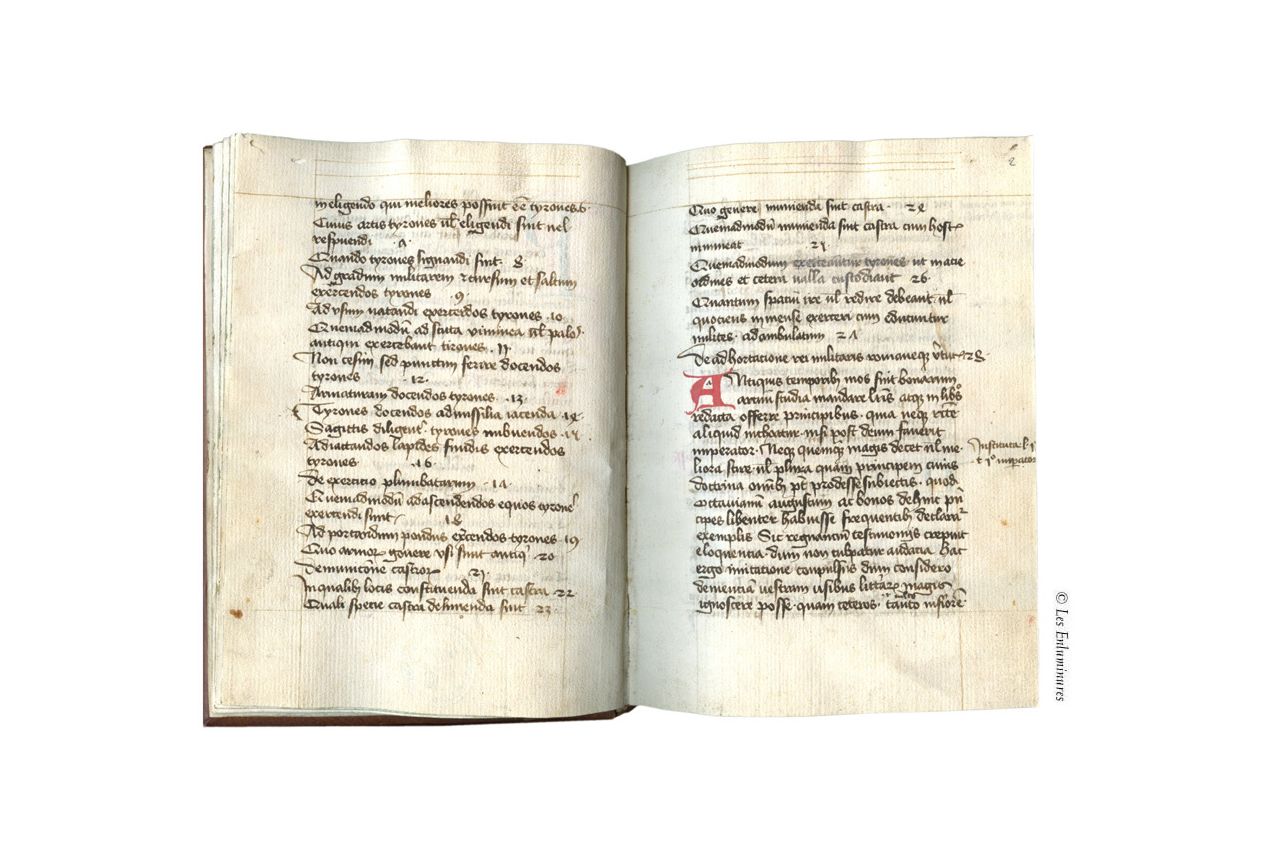 in eligendo qui meliores possint ēē tyrones 6
Cuius artis tyrones ul' eligendi sint uel
respuendi · ʌ ·
Quando tyrones signandi sint · 8
Ad gradum militarem ⁊ cursum et saltum
exercendos tyrones · 9 ·
Ad usum natandi exercendos tyrones · 10 ·
Quemadmodū ad scuta viminea ul' palos
antiqui exercebant tirones · 11
Non cesim sed punctim ferire docendos
tyrones · 12 ·
Armaturam docendos tyrones · 13 ·
Tyrones docendos ad missilia iacenda · 14 ·
Sagittis diligent' tyrones imbuendos · 15
Ad iactandos lapides fundis exercendos
tyrones · 16 ·
De exercitio plumbatarum · 1ʌ ·
Quemadmodū ad ascendendos equos tyrones
exercendi sint 18
Ad portandum pondus exercendos tyrones · 19
Quo armor genere usi sunt antiqi · 20
De municōne castror 21 ·
In qualib; locis constituenda sint castra · 22
Quali specie castra delinienda sint · 23 ·
2
Quo genere munienda sint castra · 24
Quemadmodū munienda sint castra cum hostis
immineat 25
Quemadmodum exerceantur tyrones ut in acie
ordines et cetera ualla custodiant 26 ·
Quantum spatiū ire ul' redire debeant · ul'
quociens in mense exerceri cum educuntur
milites · ad ambulatum 2ʌ
De adhortacione rei militaris romaneq; v̄tut 28 ·
Antiquis temporib; mos fuit bonarum
artium studia mandare lr̄is atq; in lib's
redacta offerre principibus · quia neq; rite
aliquid inchoatur · nisi post deum fauerit
imperator · Neq; quemq; magis decet ul' me-
liora scire · ul' plura quam principem cuius
doctrina omīb; pt prodesse subiectis · quod
Octauianū augustum ac bonos dehinc pn̄
cipes libenter habuisse frequentib; declarar
exemplis Sic regnantiū testimonijs crepuit
eloquentia · dum non culpatur audatia Hac
ergo imitacione conpulsus dum considero
clementiā vestram usibus littarum magis
ignoscere posse · quam ceteros · tanto inferiorē
© Les Enluminures